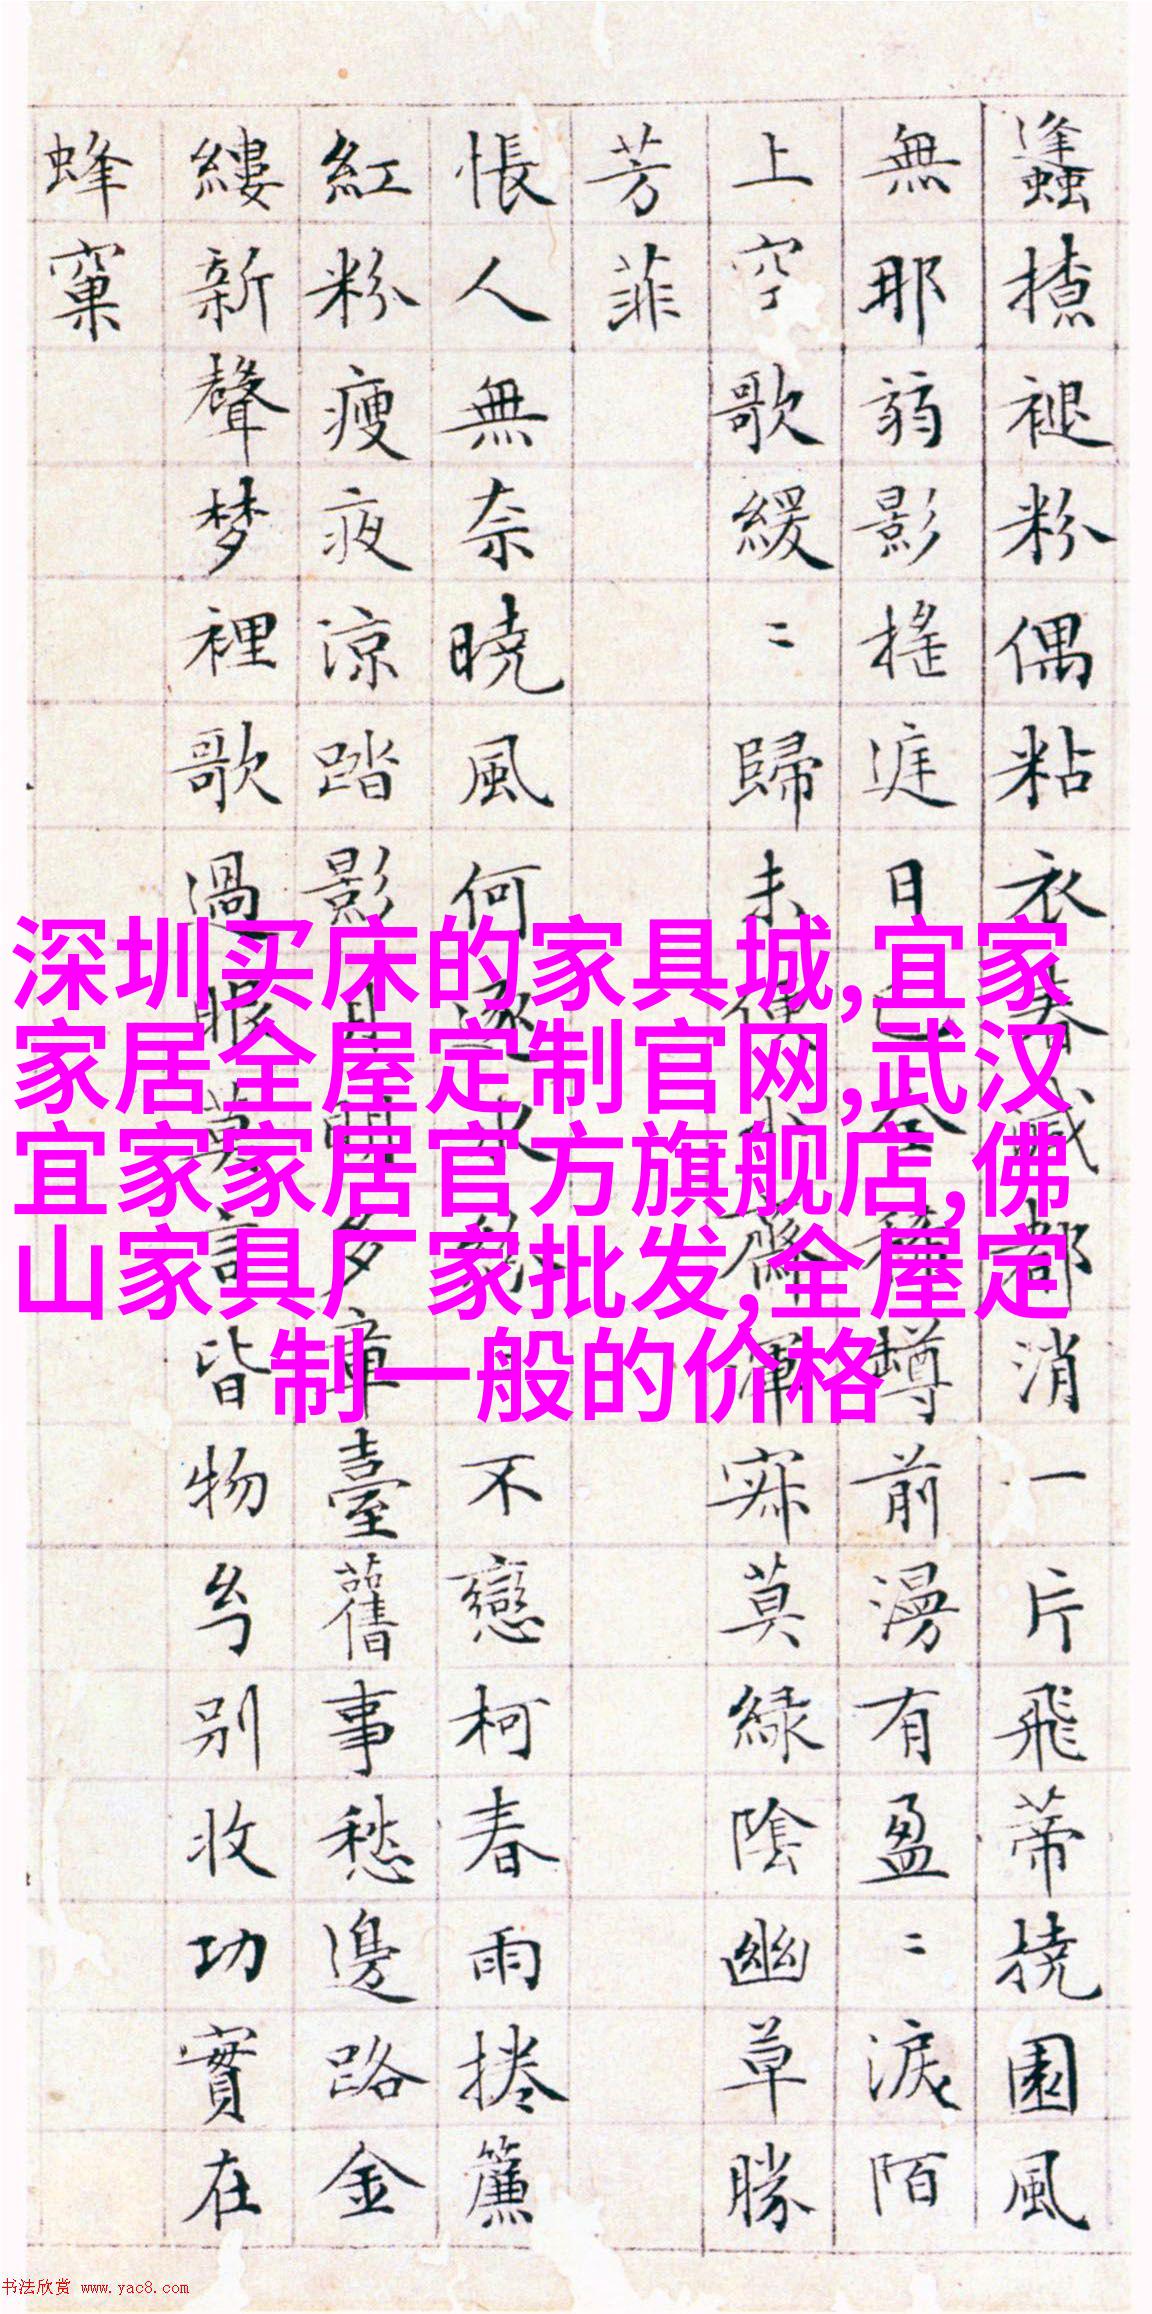 蠭褪粉偶粘衣春減都消一片飛蒂撓園風
無那弱影搖遲日已樽前漫有盈二淚陌
上空歌緩二歸未寂莫綠陰幽草勝
芳菲
悵人無奈曉風何逐水不戀柯春雨捲簾
紅粉瘦夜涼踏影月明多章臺舊事愁邊路金
縷新聲梦裡歌過眼莫言皆物别收功實在
蜂窠
深圳买床的家具城,宜家
家居全屋定制官网,武汉
宜家家居官方旗舰店,佛
山家具厂家批发,全屋定
制一般的价格
书法欣赏 www.yac8.com